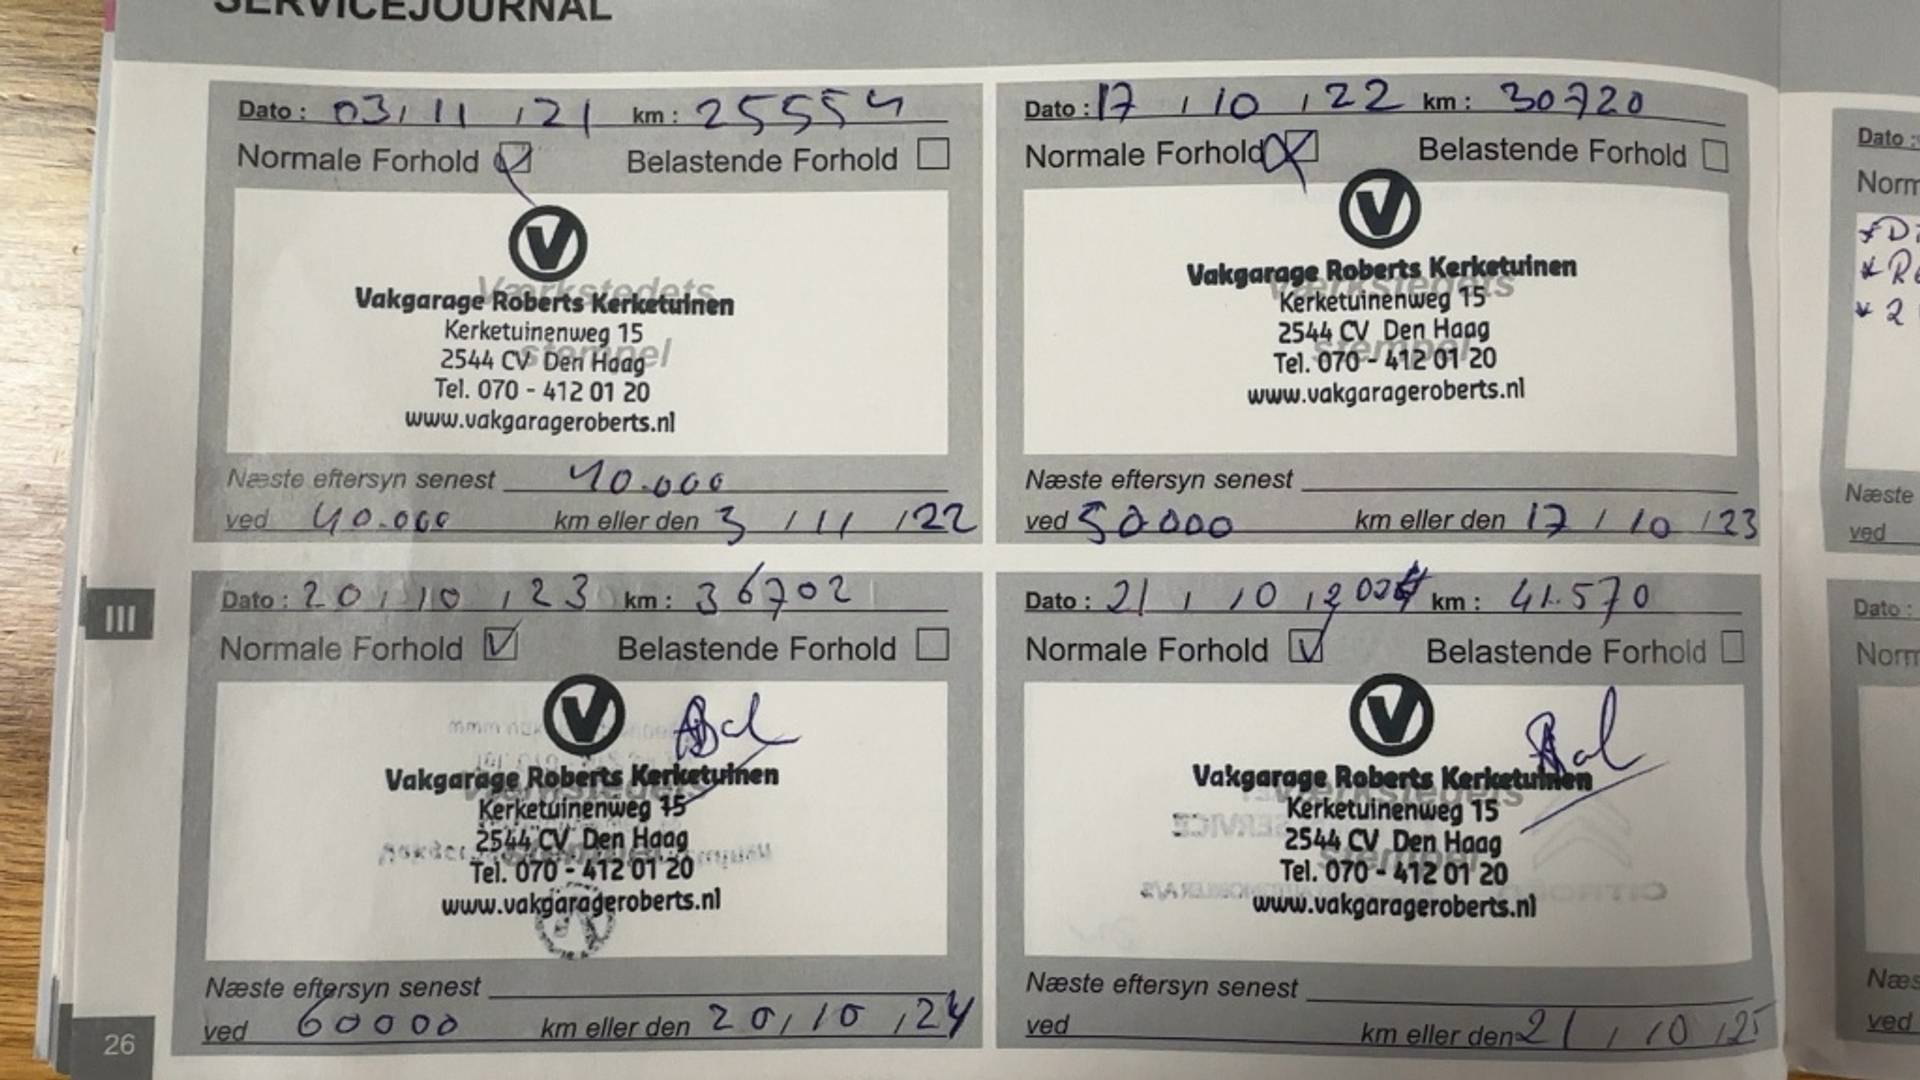 SERVICEJOURNAL
Dato : 03 / 11 / 21 km : 25554
Normale Forhold Belastende Forhold
Værkstedets
stempel
V
Vakgarage Roberts Kerketuinen
Kerketuinenweg 15
2544 CV Den Haag
Tel. 070 - 412 01 20
www.vakgarageroberts.nl
Næste eftersyn senest 40.000
ved 40.000 km eller den 3 / 11 / 22
Dato : 17 / 10 / 22 km : 30720
Normale Forhold Belastende Forhold
Værkstedets
stempel
V
Vakgarage Roberts Kerketuinen
Kerketuinenweg 15
2544 CV Den Haag
Tel. 070 - 412 01 20
www.vakgarageroberts.nl
Næste eftersyn senest
ved 50000 km eller den 17 / 10 / 23
Dato : 20 / 10 / 23 km : 36702
Normale Forhold Belastende Forhold
Værkstedets
stempel
V
Vakgarage Roberts Kerketuinen
Kerketuinenweg 15
2544 CV Den Haag
Tel. 070 - 412 01 20
www.vakgarageroberts.nl
Næste eftersyn senest
ved 60000 km eller den 20 / 10 / 24
Dato : 21 / 10 / 2024 km : 41.570
Normale Forhold Belastende Forhold
Værkstedets
stempel
V
Vakgarage Roberts Kerketuinen
Kerketuinenweg 15
2544 CV Den Haag
Tel. 070 - 412 01 20
www.vakgarageroberts.nl
Næste eftersyn senest
ved km eller den 21 / 10 / 25
III
26
Dato :
Norm
* 2
Næste
ved
Dato :
Norm
Næs
ved